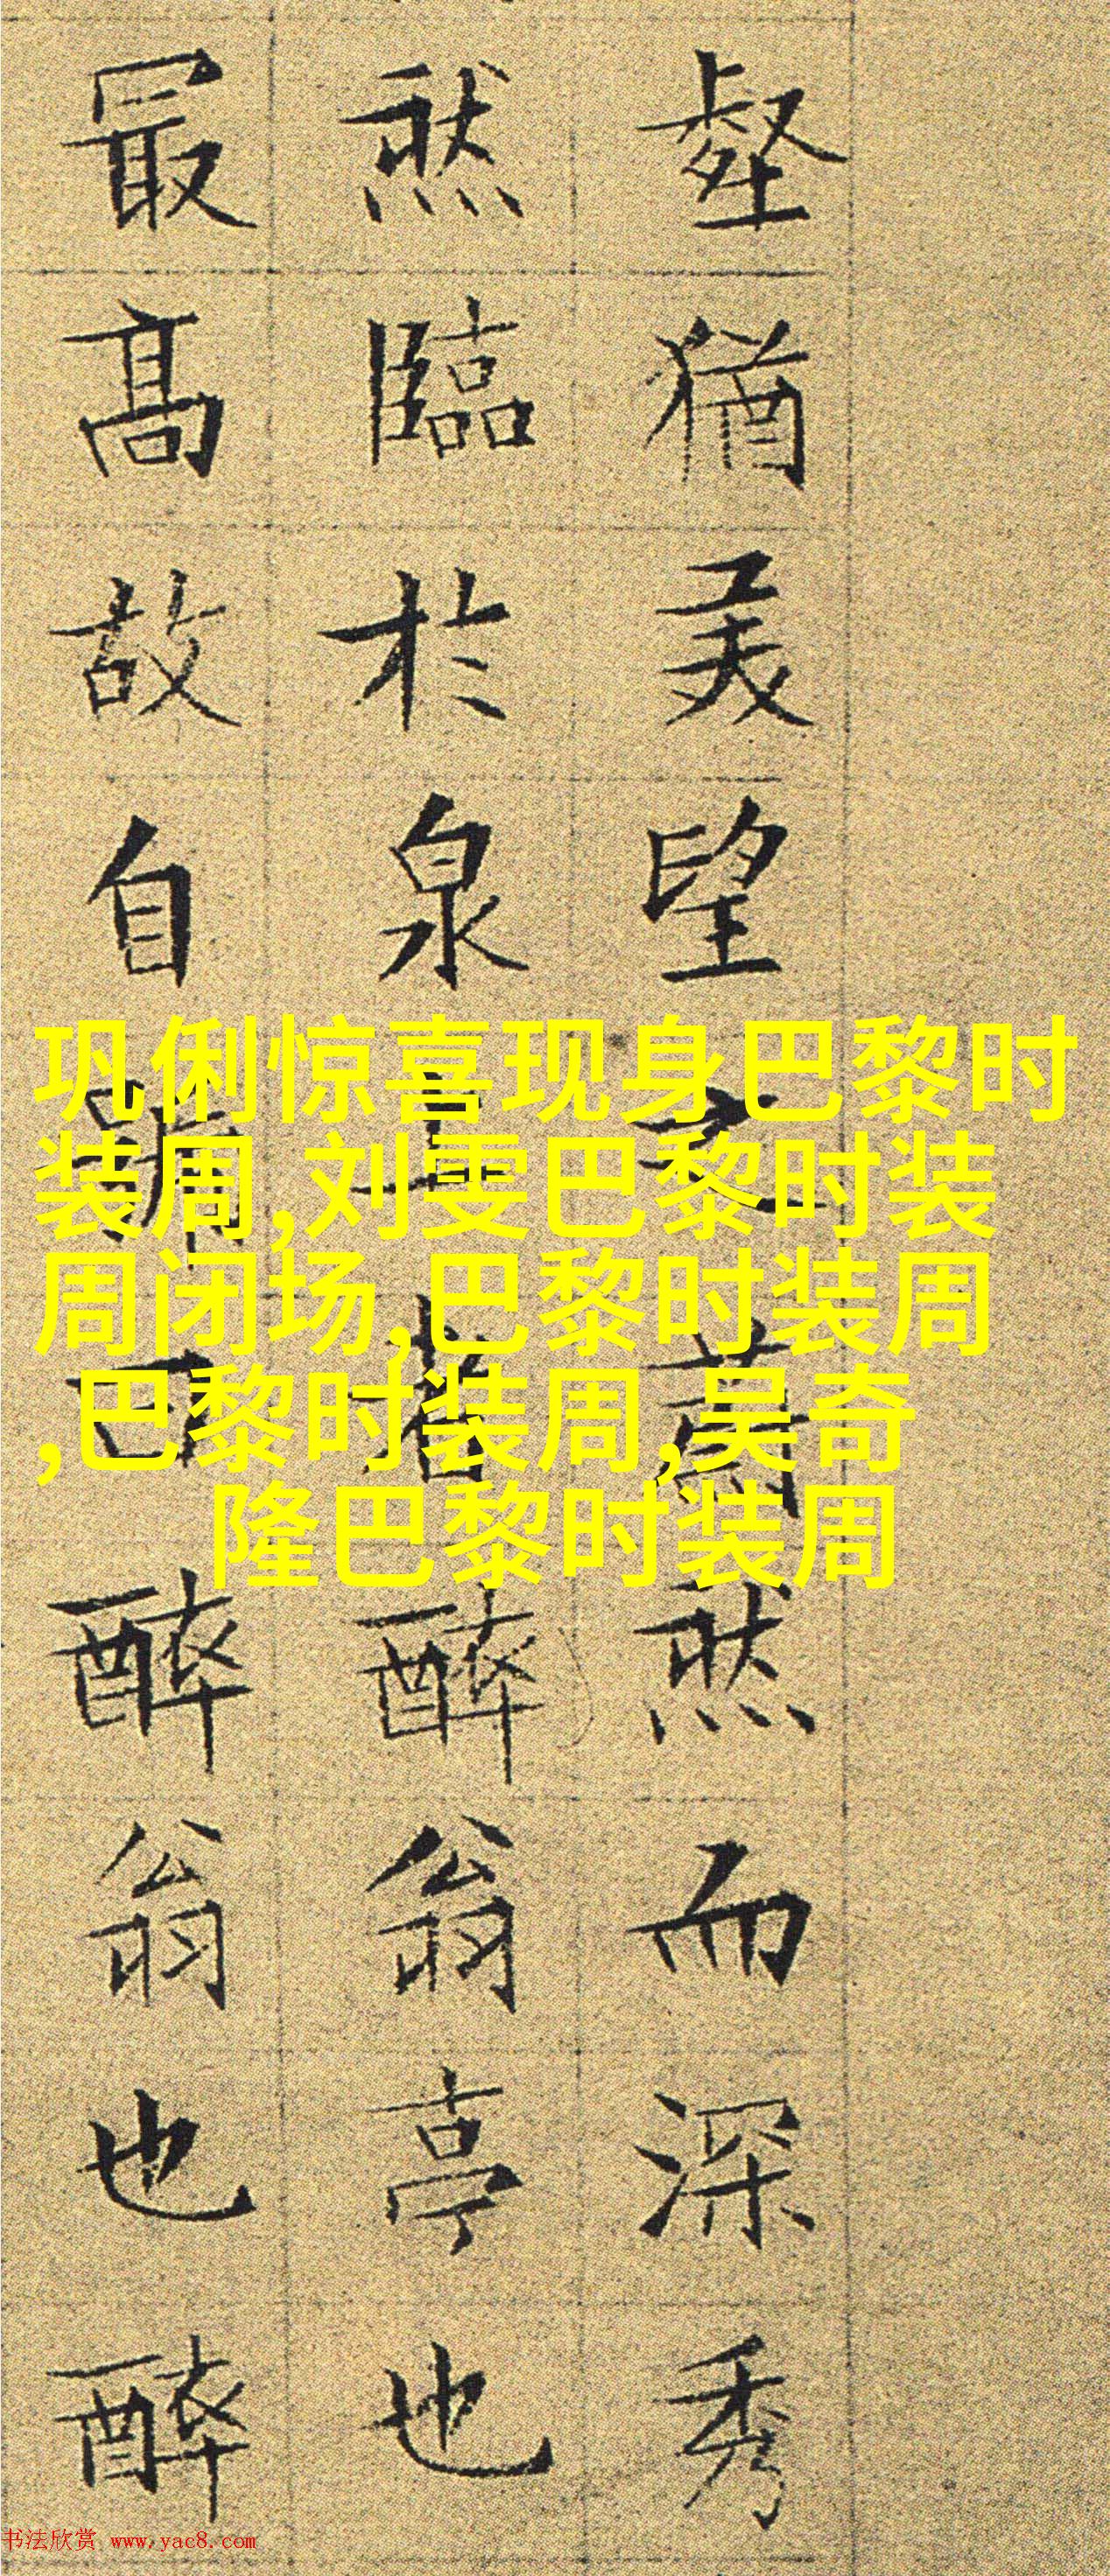 壑猶美望之蔚然而深秀
然臨於泉上者醉翁亭也
最高故自號曰醉翁也醉
巩俐惊喜现身巴黎时
装周,刘雯巴黎时装
周闭场,巴黎时装周
,巴黎时装周,吴奇
隆巴黎时装周
书法欣赏 www.yac8.com